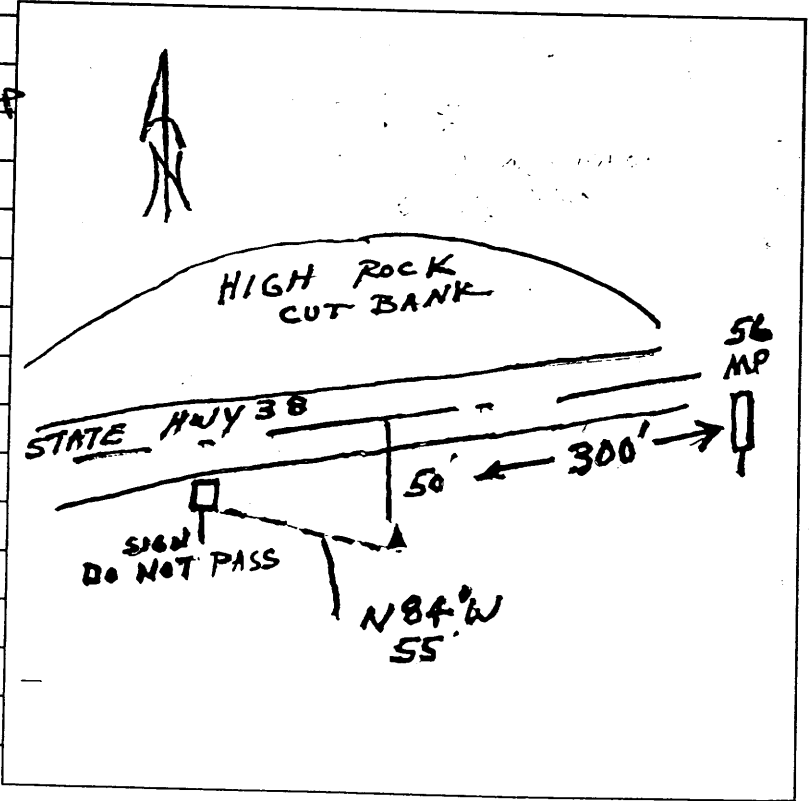 N
HIGH ROCK
CUT BANK
56
MP
STATE HWY 38
50'
300'
SIGN
DO NOT PASS
N 84° W
55'